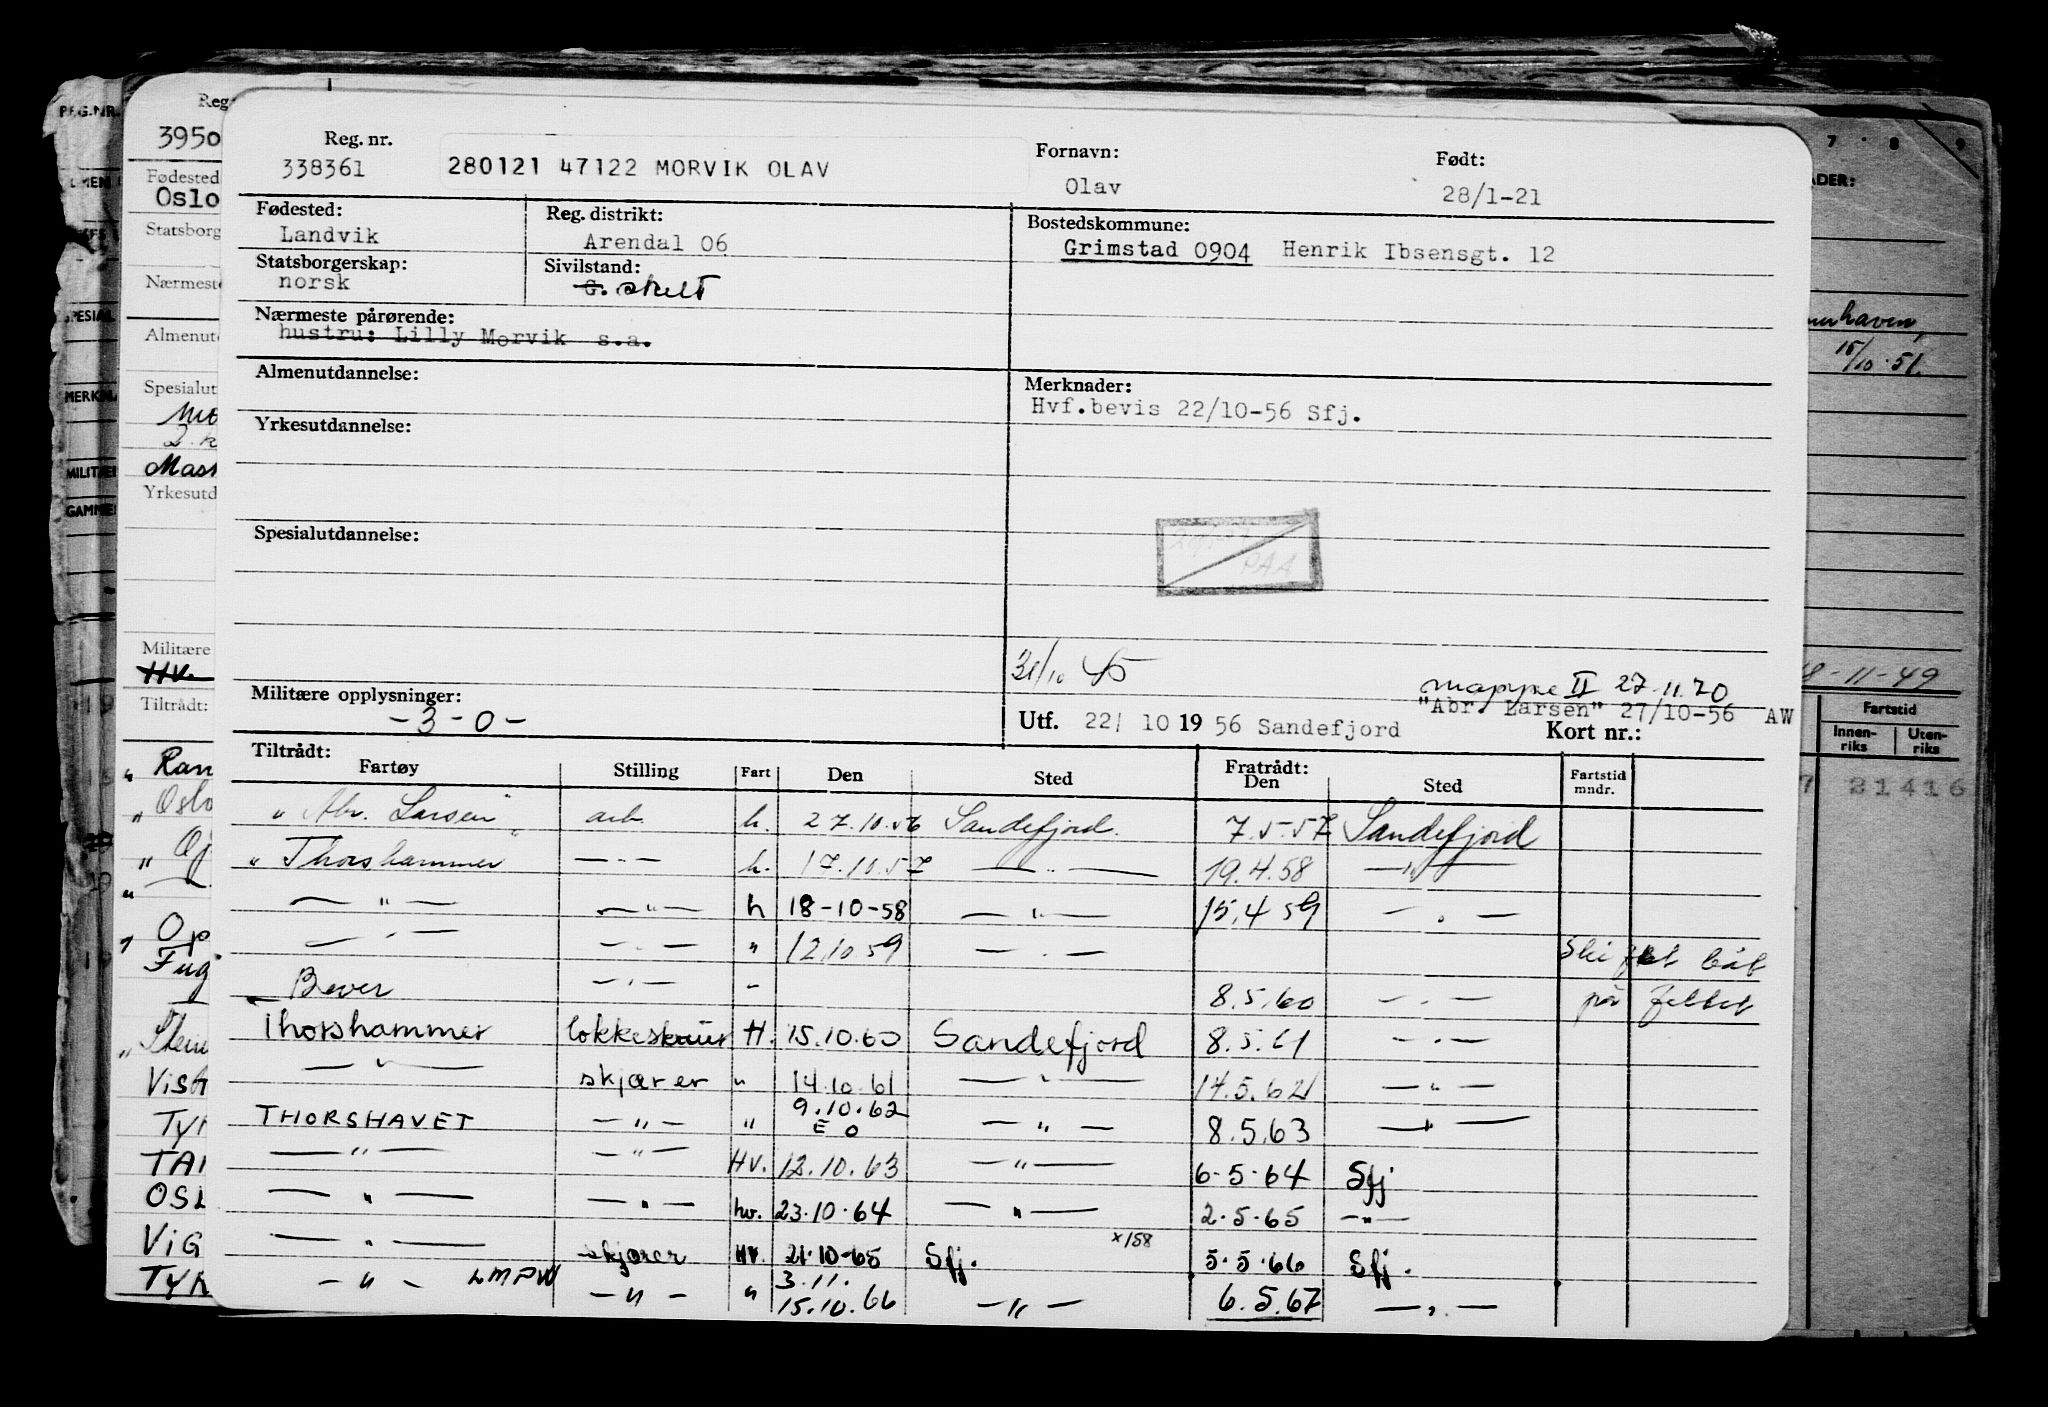 Reg. nr.
338361
280121 47122 MORVIK OLAV
Fornavn:
Olav
Født:
28/1-21
Fødested:
Landvik
Reg. distrikt:
Arendal 06
Bostedskommune:
Grimstad 0904 Henrik Ibsensgt. 12
Statsborgerskap:
norsk
Sivilstand:
G. skilt
Nærmeste pårørende:
hustru: Lilly Morvik s.a.
Almenutdannelse:
Merknader:
Hvf.bevis 22/10-56 Sfj.
Yrkesutdannelse:
Spesialutdannelse:
PAA
31/10
Militære opplysninger:
-3-0-
mappe II 27.11.70
"Abr. Larsen" 27/10-56 AW
Utf. 22/ 10 19 56 Sandefjord Kort nr.:
Tiltrådt: Fratrådt:
Fartøy Stilling Fart Den Sted Den Sted Fartstid mndr.
" Abr. Larsen " arb. h. 27.10.56 Sandefjord. 7.5.57 Sandefjord
" Thorshammer — " — h. 17.10.57 — " — 19.4.58 — " —
— " — — " — h 18-10-58 — " — 15.4 59 — " —
— " — — " — " 12.10 59 — " — Skiftet båt
Bever — " — - 8.5.60 — " — på feltet
Thorshammer lokkeskruer H. 15.10.60 Sandefjord 8.5.61 — " —
— " — skjærer " 14.10.61 — " — 14.5.62 — " —
THORSHAVET — " — " 9.10.62 E O — " — 8.5.63 — " —
— " — — " — HV. 12.10.63 — " — 6-5-64 Sfj
— " — — " — hv. 23.10.64 — " — 2.5.65 — " —
— " — skjærer HV. 21.10-65 Sfj. x158 5.5.66 Sfj.
— " — LMPW — " — " 3.11. 15.10.66 — " — 6.5.67 — " —
REG.NR.
3950
Fødested
Oslo
Statsborg
Nærmeste
Almenut
Spesialut
Yrkesutd
Militære
HV.
Tiltrådt:
Ran
Oslo
Op
Fug
TAN
OSL
VIG
7 8 9
15/10.51.
18-11-49
Fartstid
Innen-riks Uten-riks
21416